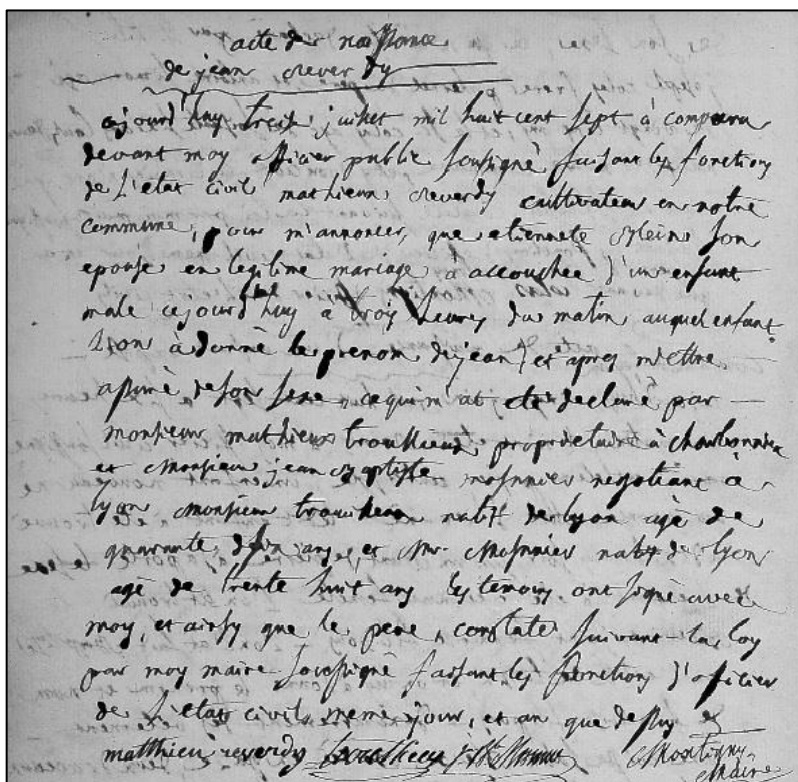 acte de naissance
de jean reverdy
ajourd'huy treise juillet mil huit cent sept à comparu
devant moy officier public sousigné faisant les fonctions
de l'etat civil mathieu reverdy cultivateur en notre
commune, pour m'annoncer, que etiennete son
epouse en legitime mariage à accouchée d'un enfant
male cejourd'huy a troys heures du matin auquel enfant
l'on à donné le prenom de jean et apres m'ettre
assuré de son sexe, ce qui m'at eté declaré par
monsieur mathieu proprietaire à charbonniere
et monsieur jean baptiste mosnier negotiant à
lyon monsieur natif de lyon agé de
quarante ans et Mr. Mosnier natif de lyon
agé de trente huit ans les temoins ont signé avec
moy, et ainsy que le pere, constaté suivant la loy
par moy maire soussigné faisant les fonctions d'officier
de l'etat civil meme jour, et an que dessus
matthieu reverdy Montigny
Maire